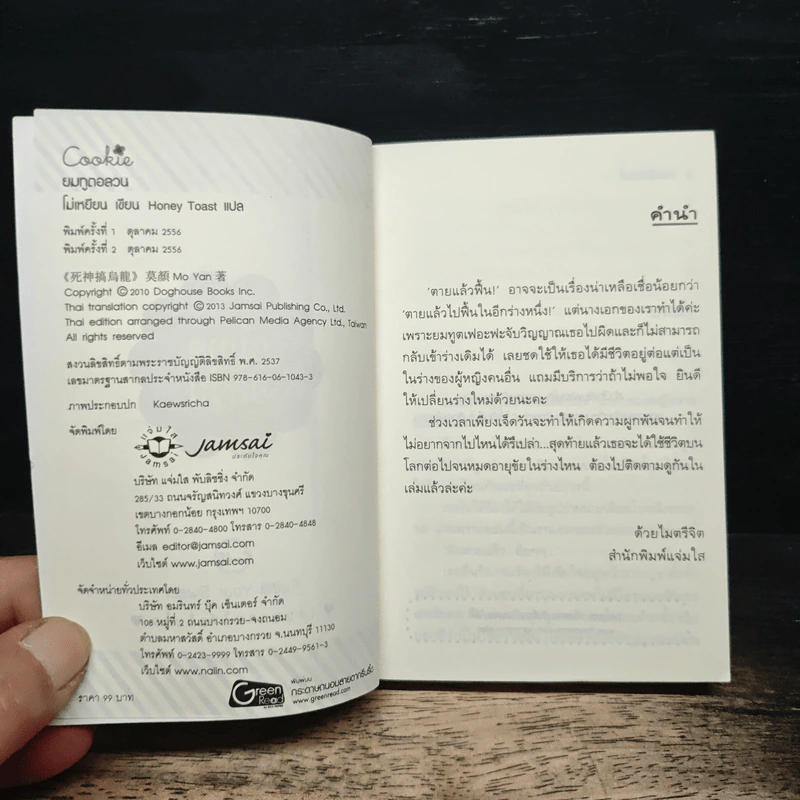 Cookie
ยมทูตอลวน
โม่เหยียน เขียน Honey Toast แปล
พิมพ์ครั้งที่ 1 ตุลาคม 2556
พิมพ์ครั้งที่ 2 ตุลาคม 2556
《死神搞烏龍》 莫顏 Mo Yan 著
Copyright © 2010 Doghouse Books Inc.
Thai translation copyright © 2013 Jamsai Publishing Co., Ltd.
Thai edition arranged through Pelican Media Agency Ltd., Taiwan
All rights reserved
สงวนลิขสิทธิ์ตามพระราชบัญญัติลิขสิทธิ์ พ.ศ. 2537
เลขมาตรฐานสากลประจำหนังสือ ISBN 978-616-06-1043-3
ภาพประกอบปก Kaewsricha
จัดพิมพ์โดย
แจ่มใส
Jamsai
Jamsai
ประทับใจคุณ
บริษัท แจ่มใส พับลิชชิ่ง จำกัด
285/33 ถนนจรัญสนิทวงศ์ แขวงบางขุนศรี
เขตบางกอกน้อย กรุงเทพฯ 10700
โทรศัพท์ 0-2840-4800 โทรสาร 0-2840-4848
อีเมล editor@jamsai.com
เว็บไซต์ www.jamsai.com
จัดจำหน่ายทั่วประเทศโดย
บริษัท อมรินทร์ บุ๊ค เซ็นเตอร์ จำกัด
108 หมู่ที่ 2 ถนนบางกรวย-จงถนอม
ตำบลมหาสวัสดิ์ อำเภอบางกรวย จ.นนทบุรี 11130
โทรศัพท์ 0-2423-9999 โทรสาร 0-2449-9561-3
เว็บไซต์ www.naiin.com
Green Read
พิมพ์บน
กระดาษถนอมสายตากรีนรี้ด
www.greenread.com
ราคา 99 บาท
คำนำ
'ตายแล้วฟื้น!' อาจจะเป็นเรื่องน่าเหลือเชื่อน้อยกว่า
'ตายแล้วไปฟื้นในอีกร่างหนึ่ง!' แต่นางเอกของเราทำได้ค่ะ
เพราะยมทูตเฟอะฟะจับวิญญาณเธอไปผิดและก็ไม่สามารถ
กลับเข้าร่างเดิมได้ เลยชดใช้ให้เธอได้มีชีวิตอยู่ต่อแต่เป็น
ในร่างของผู้หญิงคนอื่น แถมมีบริการว่าถ้าไม่พอใจ ยินดี
ให้เปลี่ยนร่างใหม่ด้วยนะคะ
ช่วงเวลาเพียงเจ็ดวันจะทำให้เกิดความผูกพันจนทำให้
ไม่อยากจากไปไหนได้รึเปล่า...สุดท้ายแล้วเธอจะได้ใช้ชีวิตบน
โลกต่อไปจนหมดอายุขัยในร่างไหน ต้องไปติดตามดูกันใน
เล่มแล้วล่ะค่ะ
ด้วยไมตรีจิต
สำนักพิมพ์แจ่มใส